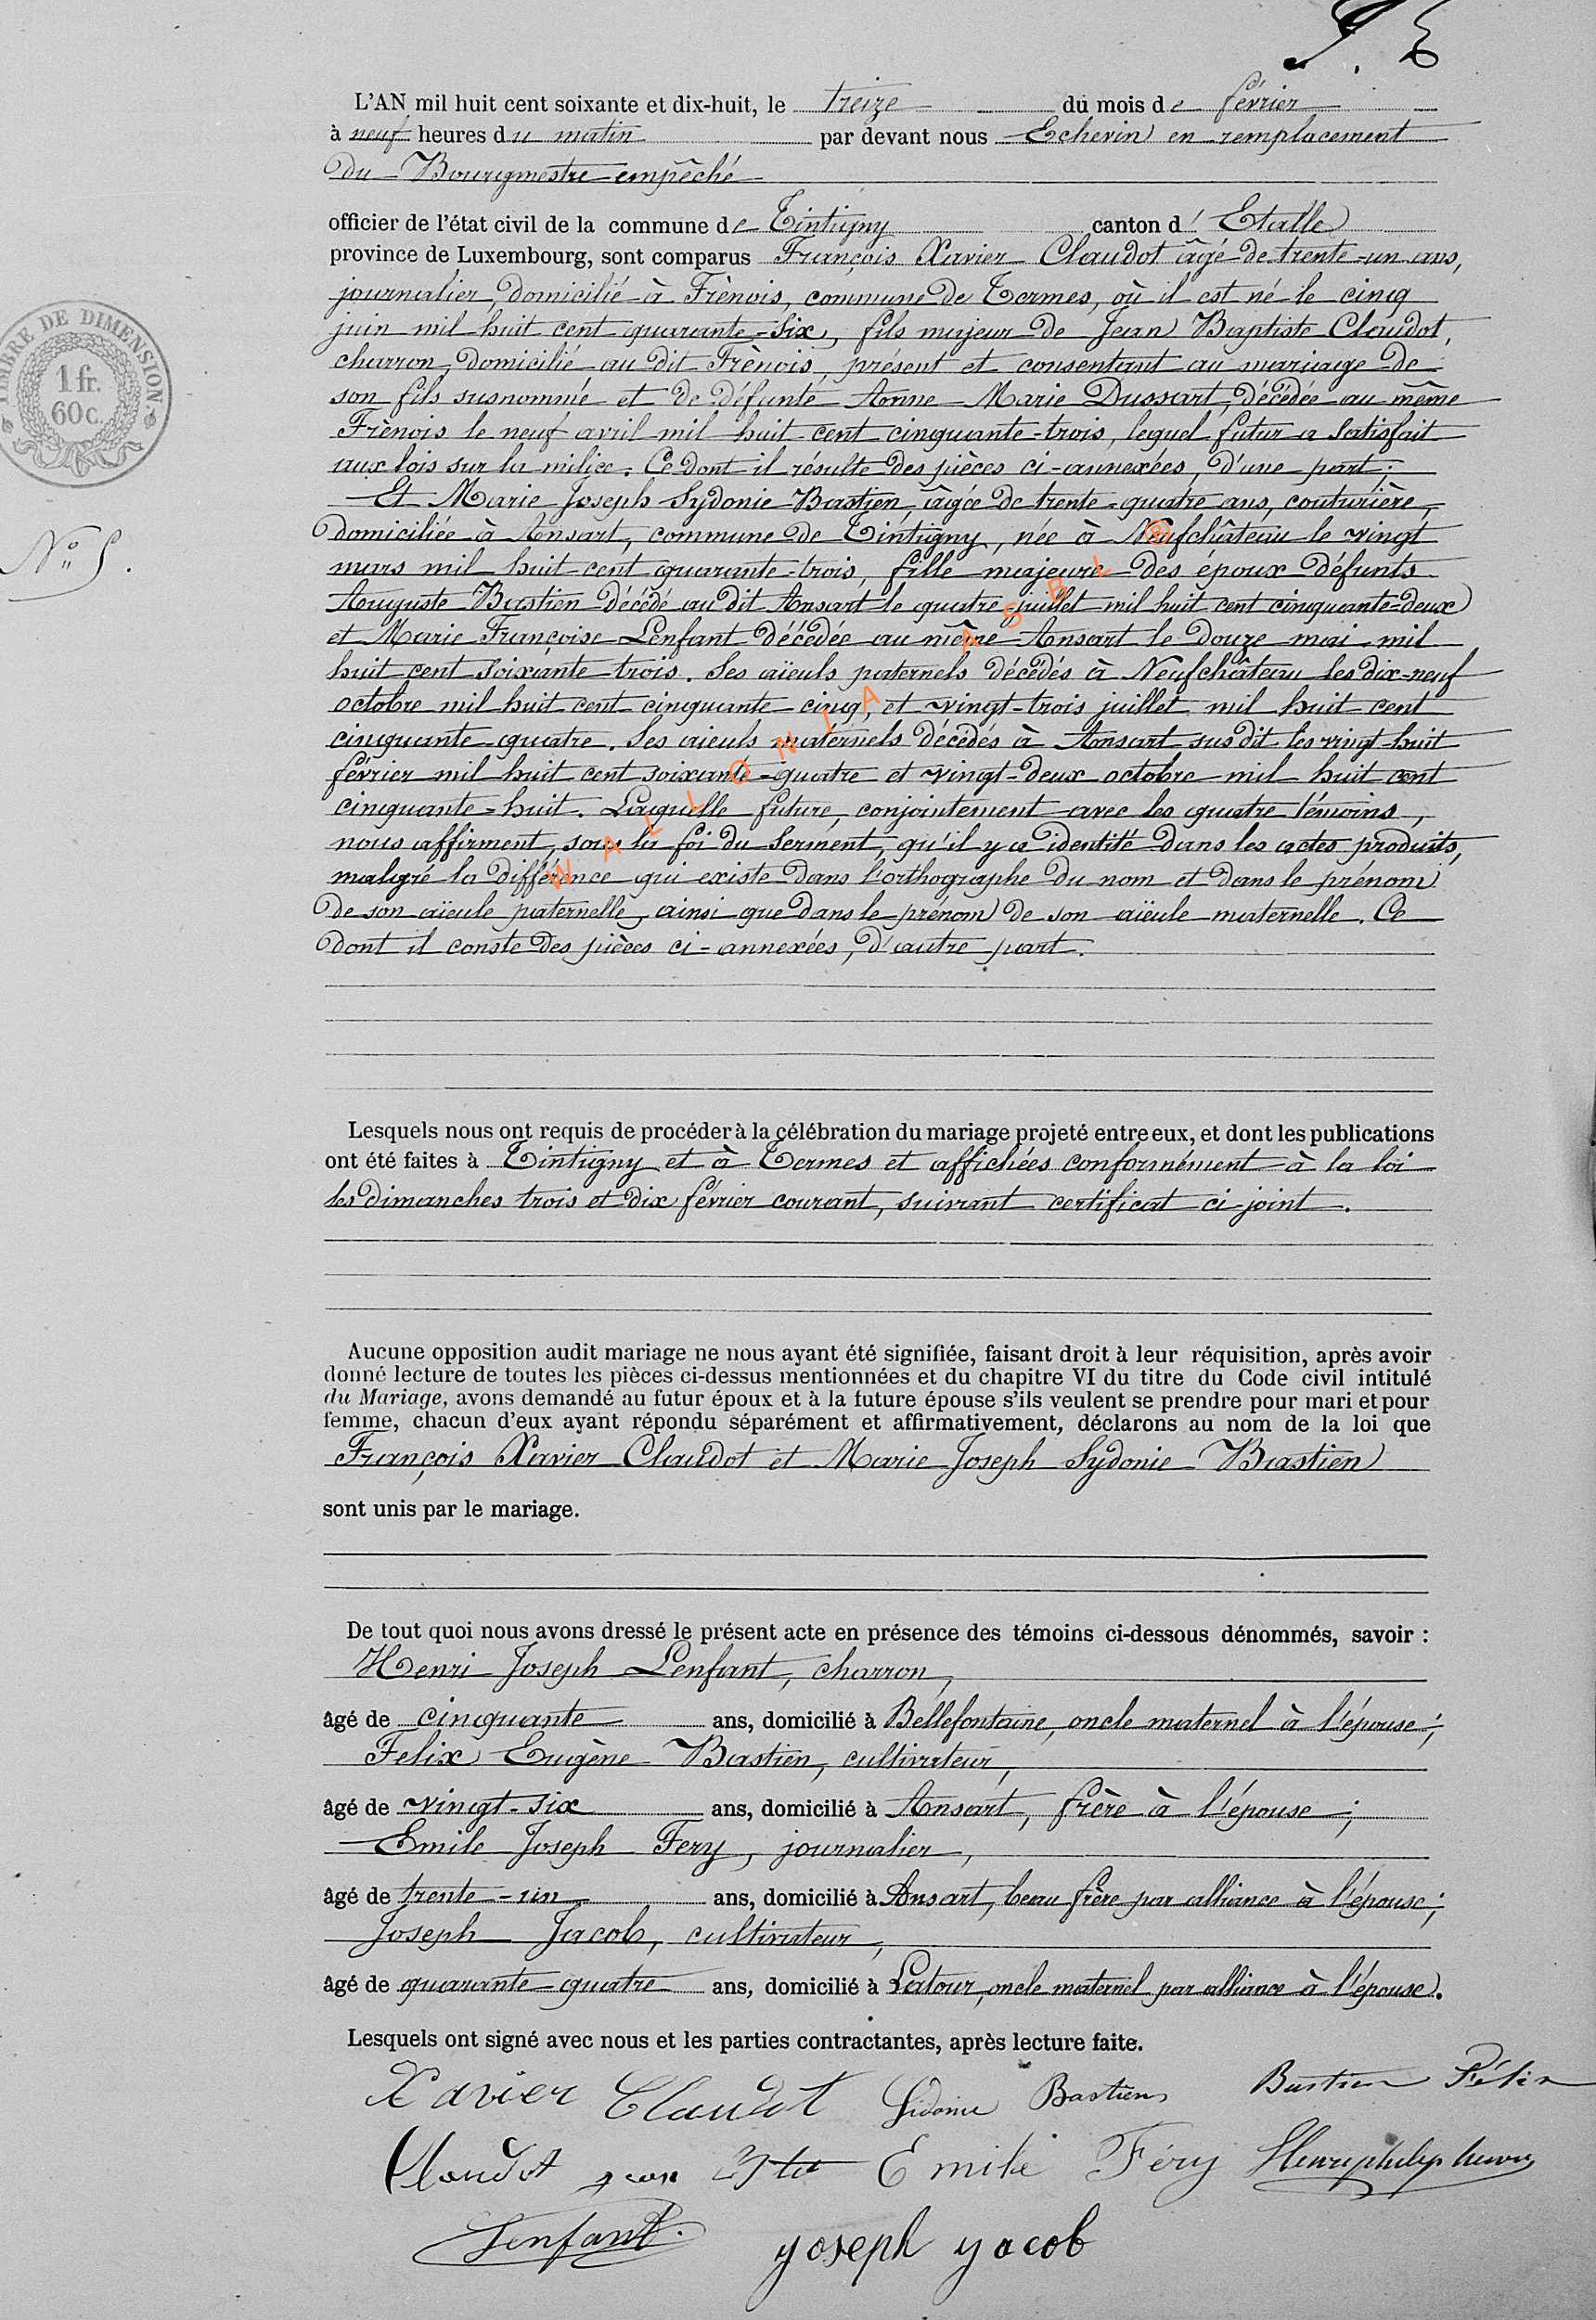 L'AN mil huit cent soixante et dix-huit, le treize du mois de février
à neuf heures du matin par devant nous Echevin en remplacement
du Bourgmestre empêché
officier de l'état civil de la commune de Tintigny canton d'Etalle
province de Luxembourg, sont comparus François Xavier Claudot âgé de trente-un ans,
journalier, domicilié à Frênois, commune de Termes, où il est né le cinq
juin mil huit cent quarante-six, fils majeur de Jean Baptiste Claudot,
charron, domicilié au dit Frênois, présent et consentant au mariage de
son fils susnommé et de défunte Anne Marie Dussart, décédée au même
Frênois le neuf avril mil huit cent cinquante-trois, lequel futur a satisfait
aux lois sur la milice. Ce dont il résulte des pièces ci-annexées, d'une part;
TIMBRE DE DIMENSION
1 fr.
60c.
Et Marie Joseph Sydonie Bastien, âgée de trente-quatre ans, couturière,
N° 5.
domiciliée à Ansart, commune de Tintigny, née à Neufchâteau le vingt
mars mil huit cent quarante-trois, fille majeure des époux défunts
Auguste Bastien décédé au dit Ansart le quatre juillet mil huit cent cinquante-deux
et Marie Françoise Lenfant décédée au même Ansart le douze mai mil
huit cent soixante trois. Ses aïeuls paternels décédés à Neufchâteau les dix-neuf
octobre mil huit cent cinquante cinq, et vingt-trois juillet mil huit cent
cinquante-quatre. Ses aïeuls maternels décédés à Ansart susdit les vingt-huit
février mil huit cent soixante-quatre et vingt-deux octobre mil huit cent
cinquante-huit. Laquelle future, conjointement avec les quatre témoins,
nous affirment, sous la foi du serment, qu'il y a identité dans les actes produits,
malgré la différence qui existe dans l'orthographe du nom et dans le prénom
de son aïeule paternelle, ainsi que dans le prénom de son aïeule maternelle. Ce
dont il conste des pièces ci-annexées, d'autre part.
WALLONIA ASBL ®
Lesquels nous ont requis de procéder à la célébration du mariage projeté entre eux, et dont les publications
ont été faites à Tintigny et à Termes et affichées conformément à la loi
les dimanches trois et dix février courant, suivant certificat ci-joint.
Aucune opposition audit mariage ne nous ayant été signifiée, faisant droit à leur réquisition, après avoir
donné lecture de toutes les pièces ci-dessus mentionnées et du chapitre VI du titre du Code civil intitulé
du Mariage, avons demandé au futur époux et à la future épouse s'ils veulent se prendre pour mari et pour
femme, chacun d'eux ayant répondu séparément et affirmativement, déclarons au nom de la loi que
François Xavier Claudot et Marie Joseph Sydonie Bastien
sont unis par le mariage.
De tout quoi nous avons dressé le présent acte en présence des témoins ci-dessous dénommés, savoir :
Henri Joseph Lenfant, charron,
âgé de cinquante ans, domicilié à Bellefontaine, oncle maternel à l'épouse;
Felix Eugène Bastien, cultivateur,
âgé de vingt-six ans, domicilié à Ansart, frère à l'épouse;
Emile Joseph Fery, journalier,
âgé de trente-un ans, domicilié à Ansart, beau frère par alliance à l'épouse;
Joseph Jacob, cultivateur,
âgé de quarante-quatre ans, domicilié à Latour, oncle maternel par alliance à l'épouse.
Lesquels ont signé avec nous et les parties contractantes, après lecture faite.
Xavier Claudot Sidonie Bastien Bastien Félix
Claudot jean Bte Emile Féry
Lenfant. joseph jacob